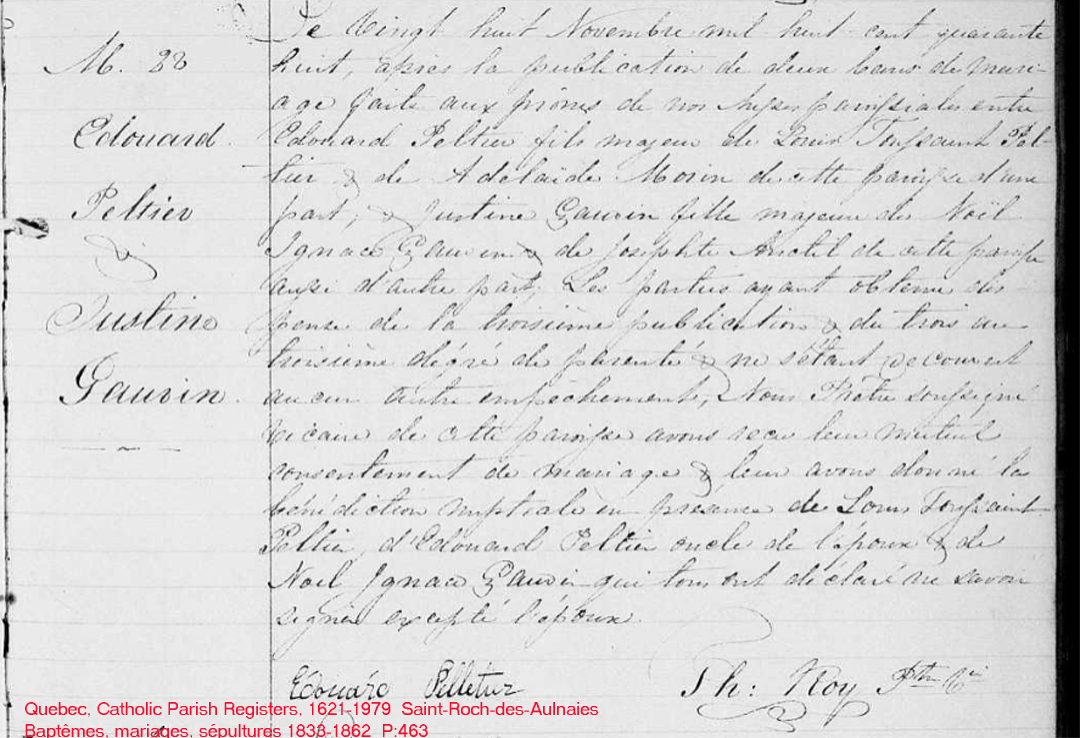 M. 28
Edouard
Peltier
&
Justine
Gauvin.
Le vingt huit Novembre mil huit cent quarante
huit, après la publication de deux bans de mari-
age faite aux prônes de nos Messes paroissiales entre
Edouard Peltier fils majeur de Louis Toussaint Pel-
tier & de Adelaïde Morin de cette paroisse d'une
part, & Justine Gauvin fille majeure de Noël
Ignace Gauvin & de Josephte Anctil de cette paroisse
aussi d'autre part; Les parties ayant obtenu dis-
pense de la troisième publication & du trois au
troisième dégré de parenté & ne s'étant découvert
aucun autre empêchement, Nous Prêtre soussigné
vicaire de cette paroisse avons reçu leur mutuel
consentement de mariage & leur avons donné la
bénédiction nuptiale en présence de Louis Toussaint
Peltier, d'Edouard Peltier oncle de l'époux & de
Noël Ignace Gauvin qui tous ont déclaré ne savoir
signer excepté l'époux.
Edouard Pelletier
Th: Roy Ptre Vic
Quebec, Catholic Parish Registers, 1621-1979 Saint-Roch-des-Aulnaies
Baptêmes, mariages, sépultures 1833-1862 P:463